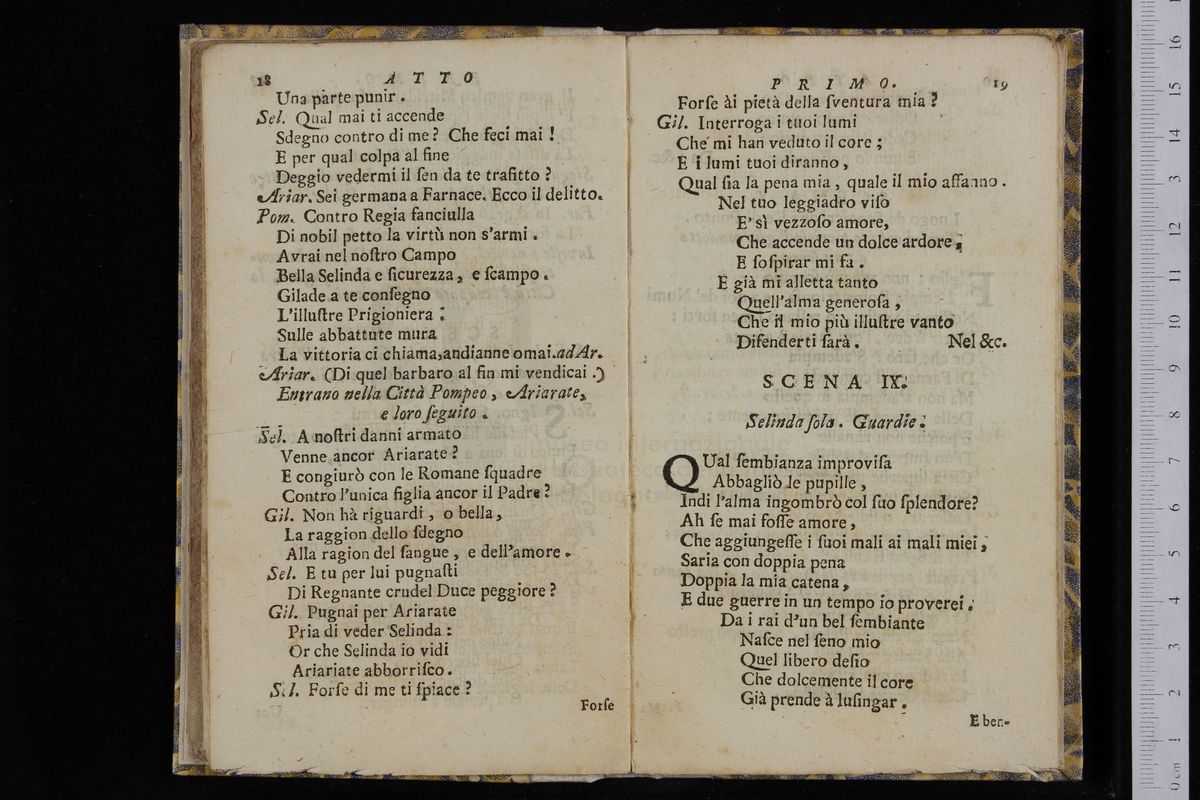 18 ATTO
Una parte punir .
Sel. Qual mai ti accende
Sdegno contro di me? Che feci mai !
E per qual colpa al fine
Deggio vedermi il ſen da te trafitto ?
Ariar. Sei germana a Farnace. Ecco il delitto.
Pom. Contro Regia fanciulla
Di nobil petto la virtù non s'armi .
Avrai nel noſtro Campo
Bella Selinda e ſicurezza, e ſcampo .
Gilade a te conſegno
L'illuſtre Prigioniera :
Sulle abbattute mura
La vittoria ci chiama,andianne omai.ad Ar.
Ariar. (Di quel barbaro al fin mi vendicai .)
Entrano nella Città Pompeo , Ariarate,
e loro ſeguito .
Sel. A noſtri danni armato
Venne ancor Ariarate ?
E congiurò con le Romane ſquadre
Contro l'unica figlia ancor il Padre ?
Gil. Non hà riguardi , o bella,
La raggion dello ſdegno
Alla ragion del ſangue , e dell'amore .
Sel. E tu per lui pugnaſti
Di Regnante crudel Duce peggiore ?
Gil. Pugnai per Ariarate
Pria di veder Selinda :
Or che Selinda io vidi
Ariariate abborriſco .
Sel. Forſe di me ti ſpiace ?
Forſe
PRIMO. 19
Forſe ài pietà della ſventura mia ?
Gil. Interroga i tuoi lumi
Che mi han veduto il core ;
E i lumi tuoi diranno ,
Qual ſia la pena mia , quale il mio affanno .
Nel tuo leggiadro viſo
E' sì vezzoſo amore,
Che accende un dolce ardore,
E ſoſpirar mi fa .
E già mi alletta tanto
Quell'alma generoſa ,
Che il mio più illuſtre vanto
Difenderti ſarà . Nel &c.
SCENA IX.
Selinda ſola . Guardie .
QUal ſembianza improviſa
Abbagliò le pupille ,
Indi l'alma ingombrò col ſuo ſplendore?
Ah ſe mai foſſe amore ,
Che aggiungeſſe i ſuoi mali ai mali miei ,
Saria con doppia pena
Doppia la mia catena ,
E due guerre in un tempo io proverei .
Da i rai d'un bel ſembiante
Naſce nel ſeno mio
Quel libero deſio
Che dolcemente il core
Già prende à luſingar .
E ben-
0 cm 1 2 3 4 5 6 7 8 9 10 11 12 13 14 15 16